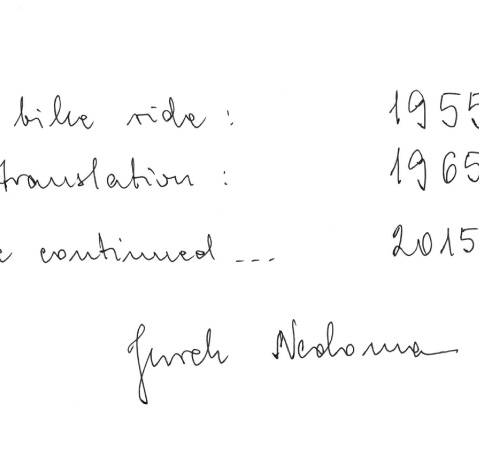 bike ride : 1955
translation : 1965
continued ... 2015
Jurek Nedoma